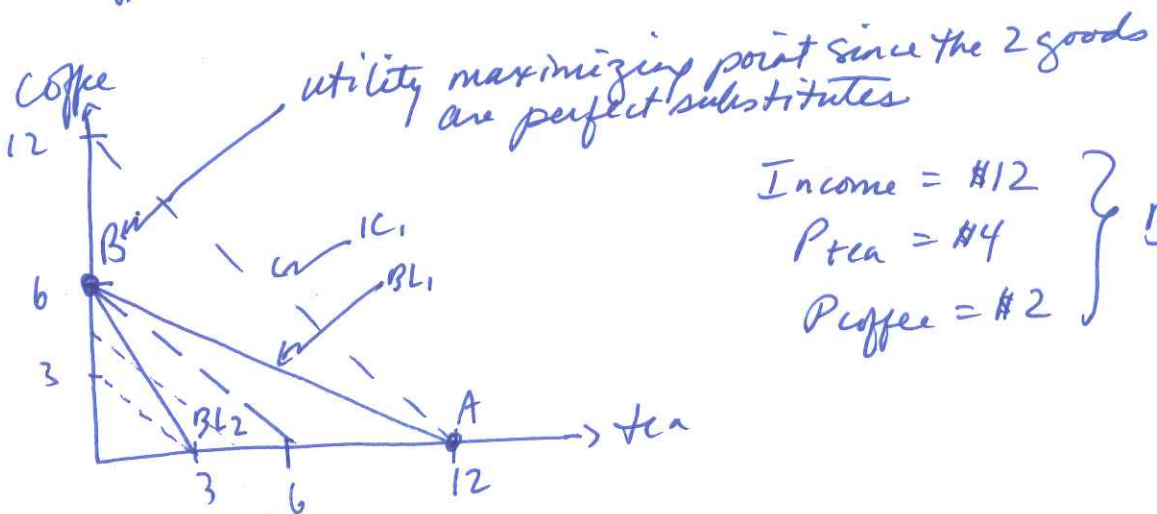 utility maximizing point since the 2 goods
are perfect substitutes
coffee
12
B
6
3
IC₁
BL₁
BL₂
A
tea
3
6
12
Income = $12
Ptea = $4
Pcoffee = $2